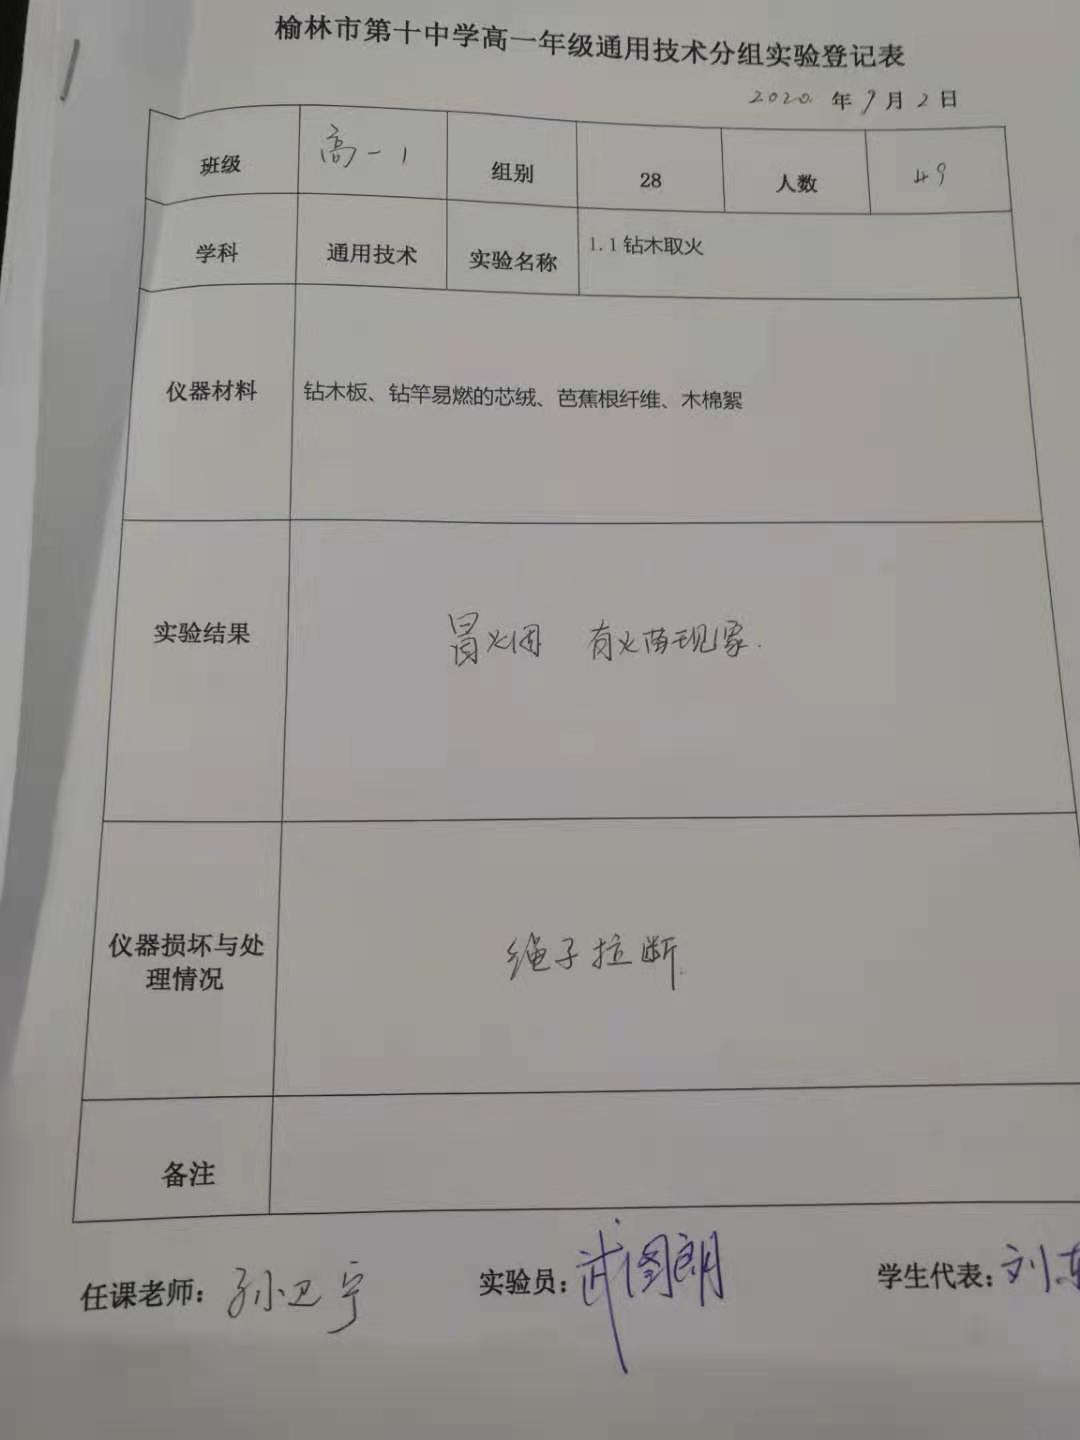 榆林市第十中学高一年级通用技术分组实验登记表
2020 年 9 月 2 日
班级 高一1 组别 28 人数 49
学科 通用技术 实验名称 1.1 钻木取火
仪器材料 钻木板、钻竿易燃的芯绒、芭蕉根纤维、木棉絮
实验结果 冒火烟 有火苗现象.
仪器损坏与处
理情况
绳子拉断.
备注
任课老师: 孙卫宁 实验员: 武 朗 学生代表: 刘